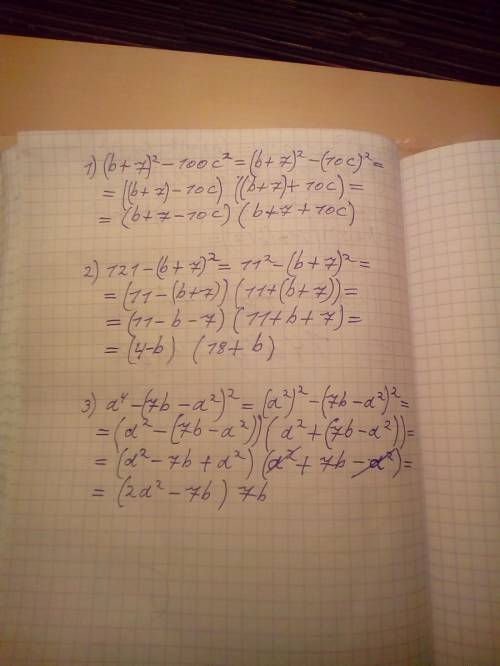 1) (b+7)²-100c²=(b+7)²-(10c)²=
=((b+7)-10c) ((b+7)+10c)=
=(b+7-10c) (b+7+10c)
2) 121-(b+7)²=11²-(b+7)²=
=(11-(b+7)) (11+(b+7))=
=(11-b-7) (11+b+7)=
=(4-b) (18+b)
3) a⁴-(7b-a²)²=(a²)²-(7b-a²)²=
=(a²-(7b-a²)) (a²+(7b-a²))=
=(a²-7b+a²) (a²+7b-a²)=
=(2a²-7b) 7b